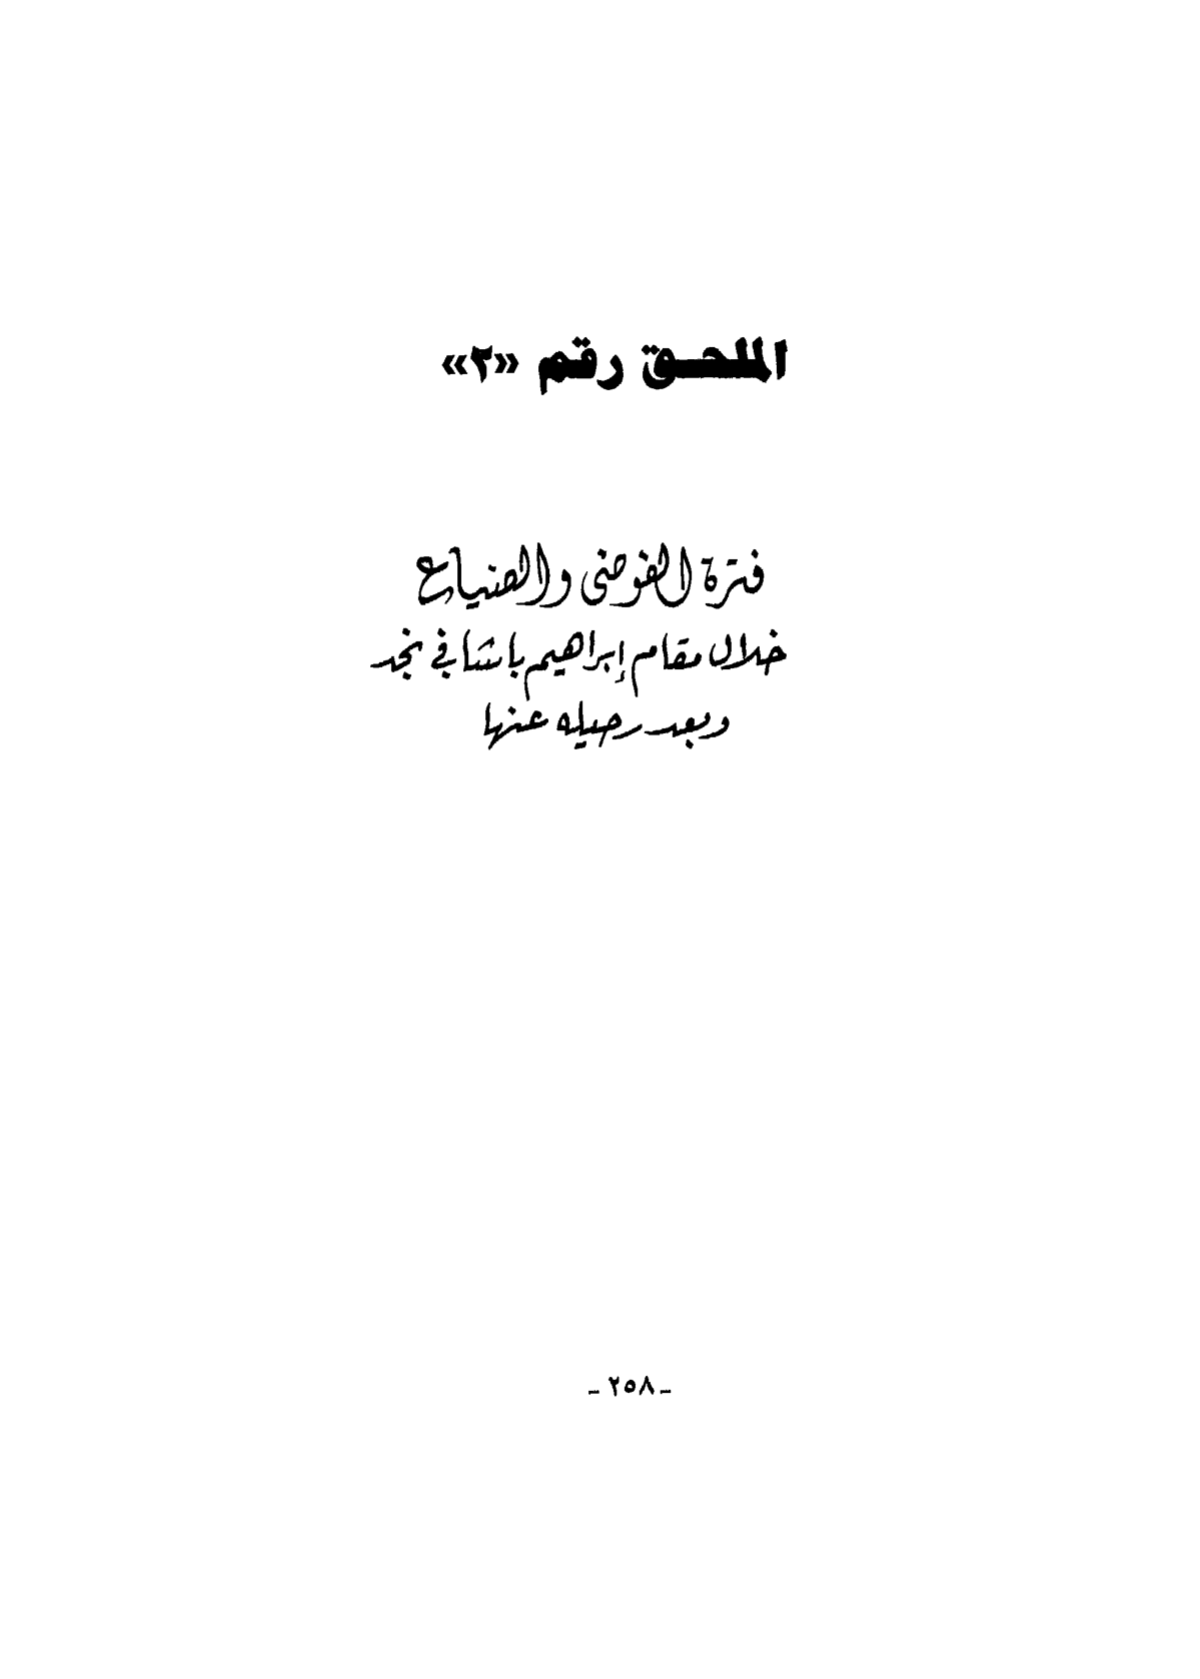 الملحق رقم «٢»
فترة الفوضى والضياع
خلال مقام إبراهيم باشا في نجد
وبعد رحيله عنها
ـ ٢٥٨ ـ